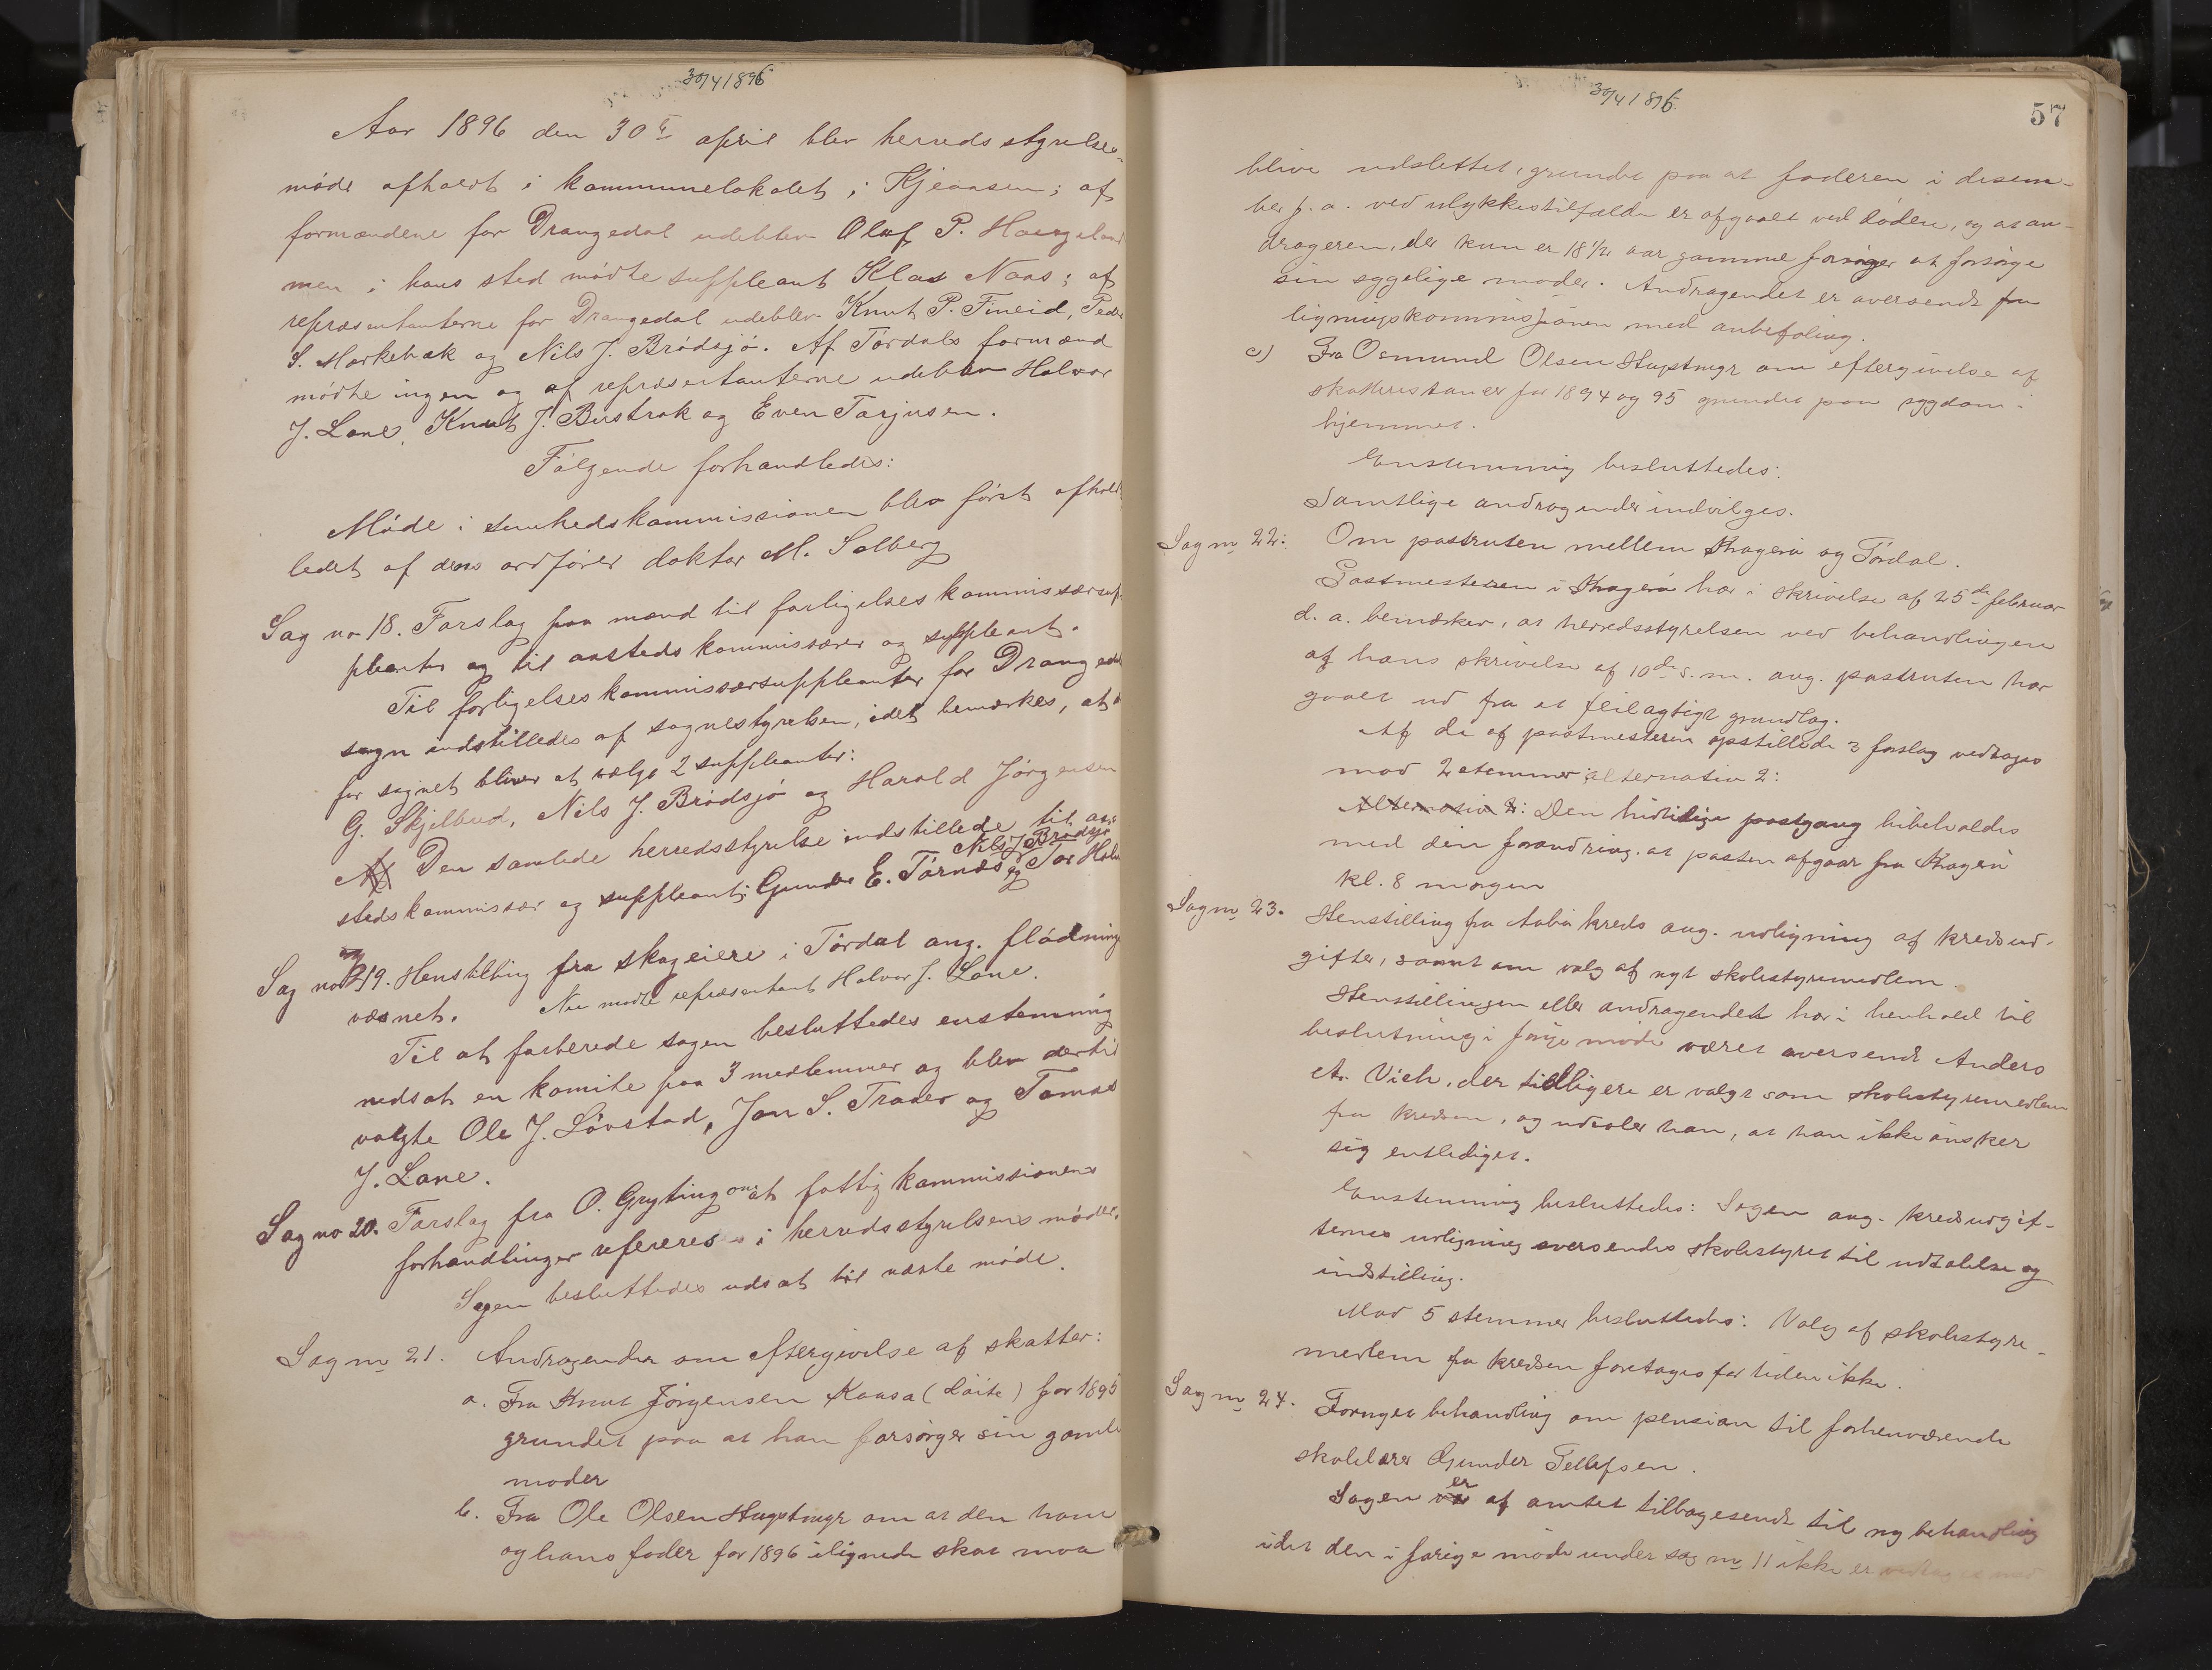 30/4 1896
Aar 1896 den 30te april blev herredsstyrelses-
møde afholdt i kommunelokalet i Kjeaasen; af
formændene for Drangedal udeblev Oluf P. Haugeland
men i hans sted mødte suppleant Klas Naas; af
repræsentanterne for Drangedal udeblev Knut P. Fineid, Peder
S. Mørkebæk og Nils J. Brødsjø. Af Tørdals formænd
mødte ingen og af repræsentanterne udeblev Halvor
J. Lone, Knut J. Bustrak og Even Tarjusen.
Følgende forhandledes:
Møde i sundhedskommissionen blev først afholdt
ledet af dens ordfører doktor M. Solberg
Sag no 18. Forslag paa mænd til forligelseskommissærsup-
pleanter og til aastedskommissærer og suppleant.
Til forligelseskommissærsuppleanter for Drangedal
sogn indstilledes af sognestyrelsen, idet bemærkes, at
for sognet bliver at vælge 2 suppleanter:
G. Skjelbred, Nils J. Brødsjø og Harald Jørgensen
Af Den samlede herredsstyrelse indstillede til aa-
Nils J Brødsjø
stedskommissær og suppleant: Gunder E. Tørnæs og Tor Halv
Sag no 19. Henstilling fra skogeiere i Tørdal ang. flødnings
væsnet. Nu mødte repræsentant Halvor J. Lone.
Til at forberede sagen besluttedes enstemmig
nedsat en komite paa 3 medlemmer og blev dertil
valgte Ole J. Løvstad, Jon S. Traaer og Tomas
J. Lone.
Sag no 20. Forslag fra O. Gryting om at fattigkommissionens
forhandlinger refereres i herredsstyrelsens møder.
Sagen besluttedes udsat til næste møde.
Sag no 21. Andragender om eftergivelse af skatter:
a. Fra Knut Jørgensen Kaasa (Løite) for 1895
grundet paa at han forsørger sin gamle
moder
b. Fra Ole Olsen Hugstmyr om at den ham
og hans fader for 1896 ilignede skat maa
30/4 1896
57
blive udslettet, grundet paa at faderen i desem-
ber f. a. ved ulykkestilfælde er afgaaet ved døden, og at an-
drageren, der kun er 18 1/2 aar gammel forsøger at forsørge
sin sygelige moder. Andragendet er oversendt fra
ligningskommisjonen med anbefaling.
c) Fra Osmund Olsen Hugstmyr om eftergivelse af
skatterestancer for 1894 og 95 grundet paa sygdom i
hjemmet.
Enstemmig besluttedes:
Samtlige andragender indvilges.
Sag no 22: Om postruten mellem Kragerø og Tørdal.
Postmesteren i Kragerø har i skrivelse af 25de februar
d. a. bemærket, at herredsstyrelsen ved behandlingen
af hans skrivelse af 10de s. m. ang. postruten har
gaaet ud fra et feilagtigt grundlag.
Af de af postmesteren opstillede 3 forslag vedtages
mod 2 stemmer alternativ 2:
Alternativ 2: Den hidtidige postgang bibeholdes
med den forandring, at posten afgaar fra Kragerø
kl. 8 morgen
Sag no 23. Henstilling fra Aabø kreds ang. udligning af kredsud-
gifter, samt om valg af nyt skolestyremedlem.
Henstillingen eller andragendet har i henhold til
beslutning i forrige møde været oversendt Anders
A. Vieh, der tidligere er valgt som skolestyremedlem
fra kredsen, og udtaler han, at han ikke ønsker
sig entlediget.
Enstemmig besluttedes: Sagen ang. kredsudgif-
ternes udligning oversendes skolestyret til udtalelse og
indstilling.
Mod 5 stemmer besluttedes: Valg af skolestyre-
medlem fra kredsen foretages for tiden ikke.
Sag no 24. Fornyet behandling om pension til forhenværende
skolelærer Gunder Tellefsen.
er
Sagen var af amtet tilbagesendt til ny behandling
idet den i forrige møde under sag no 11 ikke er vedtaget med